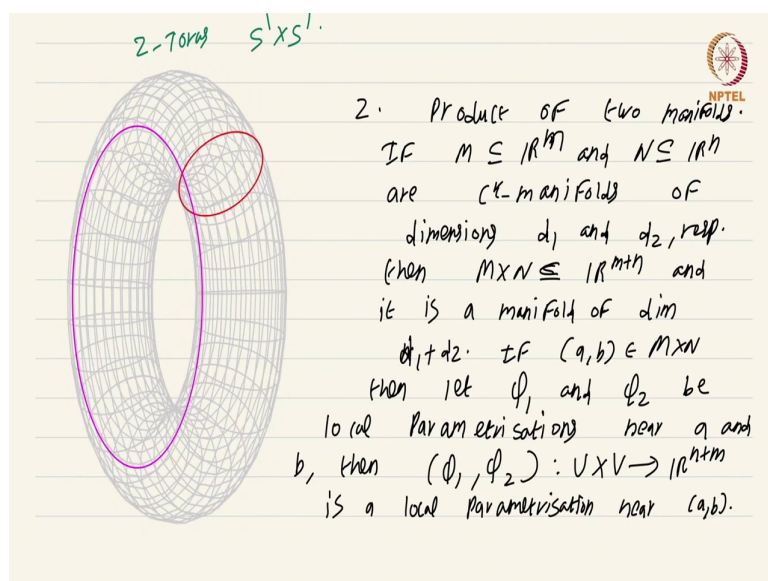 2-Torus S¹×S¹.
NPTEL
2. Product of two manifolds.
If M ⊆ ℝᵐ and N ⊆ ℝⁿ
are Cᵏ-manifolds of
dimensions d₁ and d₂, resp.
then M×N ⊆ ℝᵐ⁺ⁿ and
it is a manifold of dim
d₁+d₂. If (a,b) ∈ M×N
then let φ₁ and φ₂ be
local parametrisations near a and
b, then (φ₁, φ₂) : U×V → ℝⁿ⁺ᵐ
is a local parametrisation near (a,b).